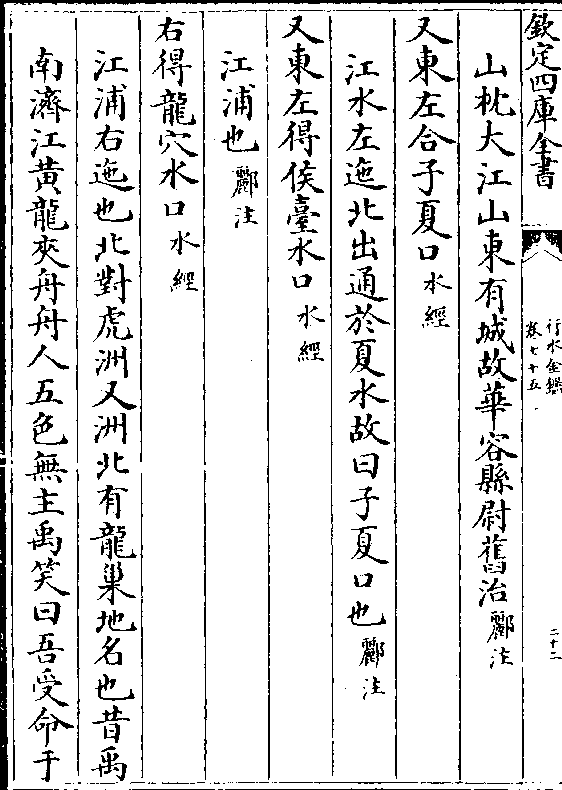 欽定四庫全書
行水金鑑
卷七十五
二十二
山枕大江山東有城故華容縣尉舊治酈注
又東左合子夏口水經
江水左迤北出通於夏水故曰子夏口也酈注
又東左得侯臺水口水經
江浦也酈注
右得龍穴水口水經
江浦右迤也北對虎洲又洲北有龍巢地名也昔禹
南濟江黃龍夾舟舟人五色無主禹笑曰吾受命于